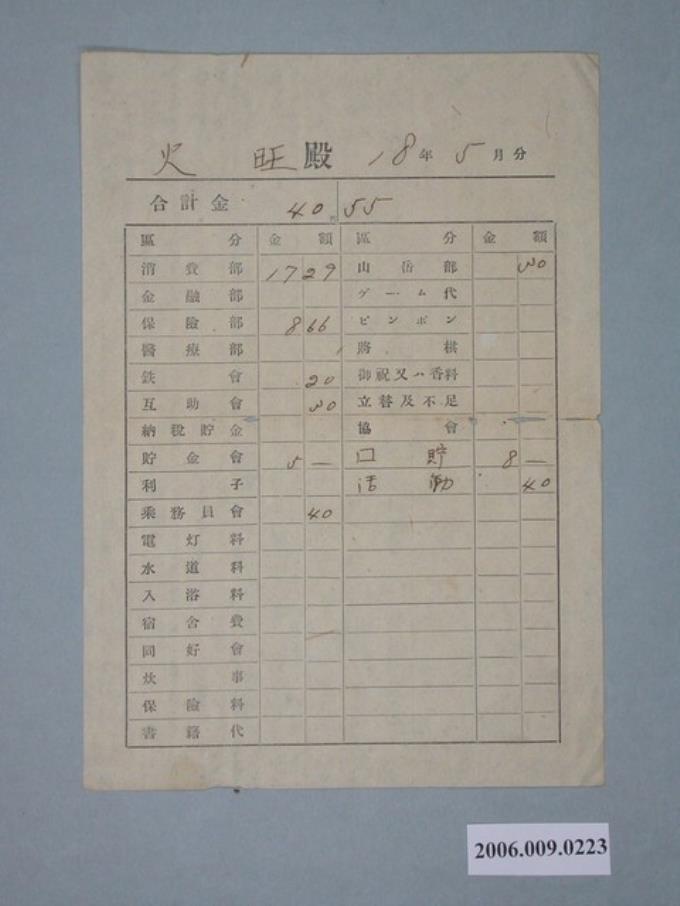 火旺殿 18年5月分
合計金 40円55
區分 金額 區分 金額
消費部 1729 山岳部 30
金融部 ゲーム代
保險部 866 ピンポン
醫療部 將棋
鉄會 20 御祝又ハ香料
互助會 30 立替及不足
納稅貯金 協會
貯金會 5— 口貯 8—
利子 活動 40
乘務員會 40
電灯料
水道料
入浴料
宿舍費
同好會
炊事
保險料
書籍代
2006.009.0223